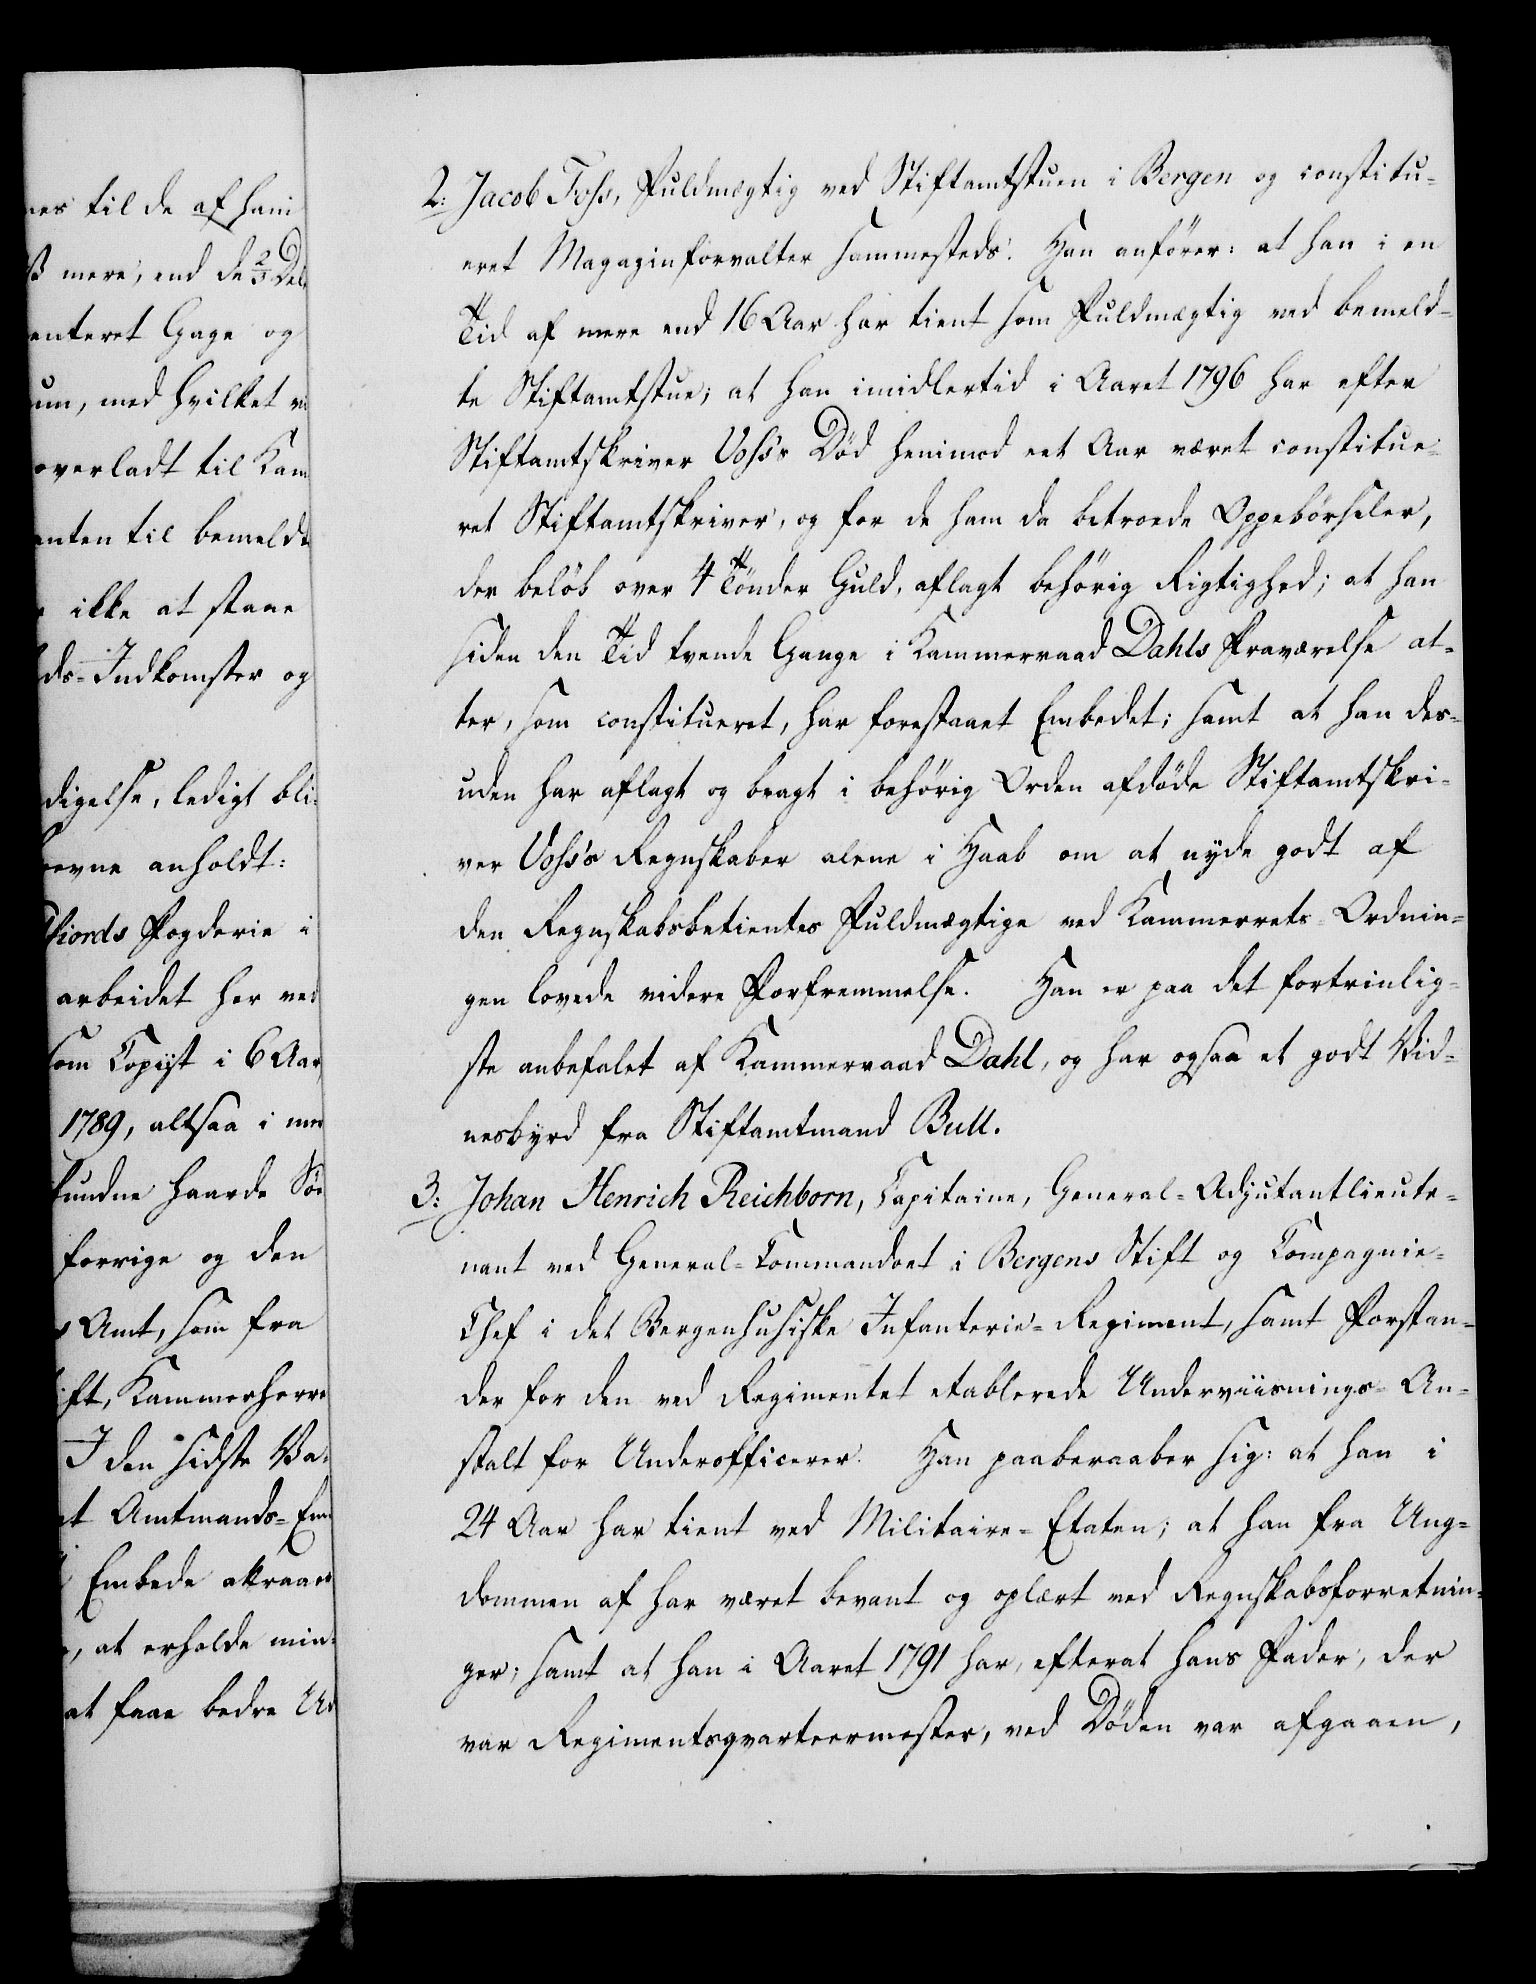 nes til de af ham
mere, end de 2/3 Dele
enteret Gage og
um, med hvilket
overladt til Kam
enten til bemeldte
ikke at staae
ds-Indkomster og
digelse, ledigt bli-
evne anholdt:
fiords Fogderie i
arbeidet her ved
som Copiist i 6 Aar,
1789, altsaa i
fundne haarde
forrige og den
Amt, som fra
ift, Kammerherre
I den sidste Va-
et Amtmands-Em
Embede attraaes
, at erholde min-
at faae bedre
2: Jacob Foss, Fuldmægtig ved Stiftamtstuen i Bergen og constitu-
eret Magazinforvalter sammesteds. Han anförer: at han i en
Tid af mere end 16 Aar har tient som Fuldmægtig ved bemeld-
te Stiftamtstue; at han imidlertid i Aaret 1796 har efter
Stiftamtskriver Voss's Död henimod eet Aar været constitue-
ret Stiftamtskriver, og for de ham da betroede Oppebörseler,
der belöb over 4 Tönder Guld, aflagt behörig Rigtighed; at han
siden den Tid tvende Gange i Kammerraad Dahls Fraværelse at-
ter, som constitueret, har forestaaet Embedet; samt at han des-
uden har aflagt og bragt i behörig Orden afdöde Stiftamtskri-
ver Voss's Regnskaber alene i Haab om at nyde godt af
den Regnskabsbetientes Fuldmægtige ved Kammerrets-Ordnin-
gen lovede videre Forfremmelse. Han er paa det fortrinlig-
ste anbefalet af Kammerraad Dahl, og har ogsaa et godt Vid-
nesbyrd fra Stiftamtmand Bull.
3: Johan Henrich Reichborn, Capitaine, General-Adjutantlieute-
nant ved General-Commandoet i Bergens Stift og Compagnie-
Chef i det Bergenhusiske Infanterie-Regiment, samt Forstan-
der for den ved Regimentet etablerede Underviisnings-An-
stalt for Underofficerer. Han paaberaaber sig: at han i
24 Aar har tient ved Militaire-Etaten; at han fra Ung-
dommen af har været bevant og oplært ved Regnskabsforretnin-
ger; samt at han i Aaret 1791 har, efterat hans Fader, der
var Regimentsqvarteermester, ved Döden var afgaaen,